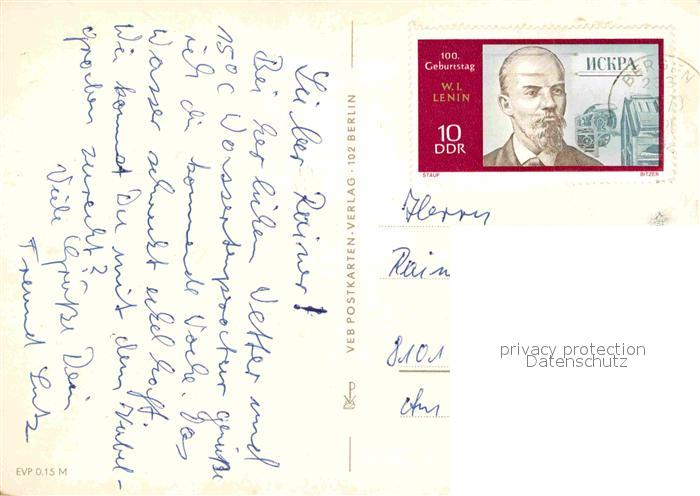 Lieber Rainer!
Bei herlichen Wetter und
15°C Wassertemperatur grüße
ich die kommende Woche. Das
Wasser schmeckt ekelhaft.
Wie kommst Du mit dem Kabel-
graben zurecht?
Viele Grüße Dein
Freund Lutz
EVP 0,15 M
VEB POSTKARTEN-VERLAG · 102 BERLIN
100.
Geburtstag
W. I.
LENIN
10
DDR
ИСКРА
STAUF BITZER
BERLIN
Herrn
Rain
8101
privacy protection
Datenschutz